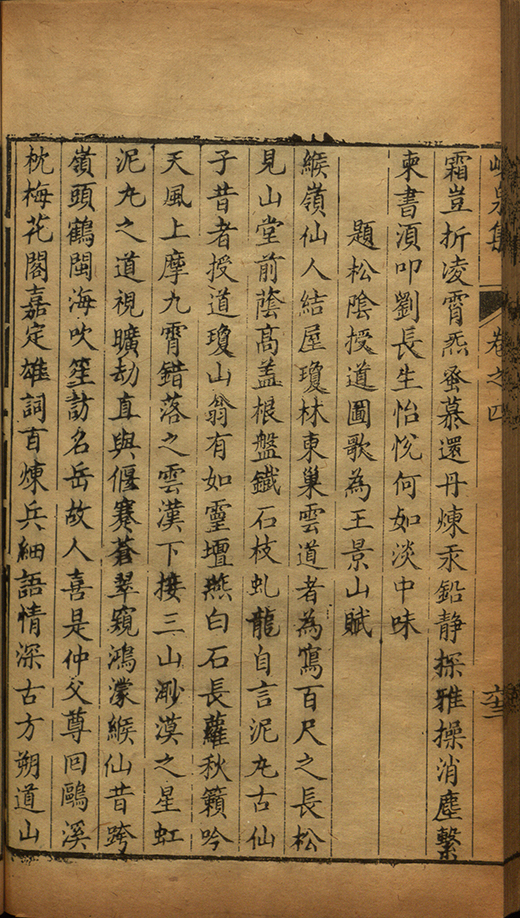 峴泉集 卷之四 六三
霜豈折凌霄炁蚤慕還丹煉汞鉛静探雅操消塵繫
柬書湏叩劉長生怡悅何如淡中味
題松陰授道圖歌為王景山賦
緱嶺仙人結屋瓊林東巢雲道者為寫百尺之長松
見山堂前蔭高盖根盤鐵石枝虬龍自言泥丸古仙
子昔者授道瓊山翁有如靈壇燕白石長蘿秋籟吟
天風上摩九霄錯落之雲漢下接三山渺漠之星虹
泥丸之道視曠劫直與偃蹇蒼翠窺鴻濛緱仙昔跨
嶺頭鶴閩海吹笙訪名岳故人喜是仲父尊囘鷗溪
枕梅花閣嘉定雄詞百煉兵細語情深古方朔道山